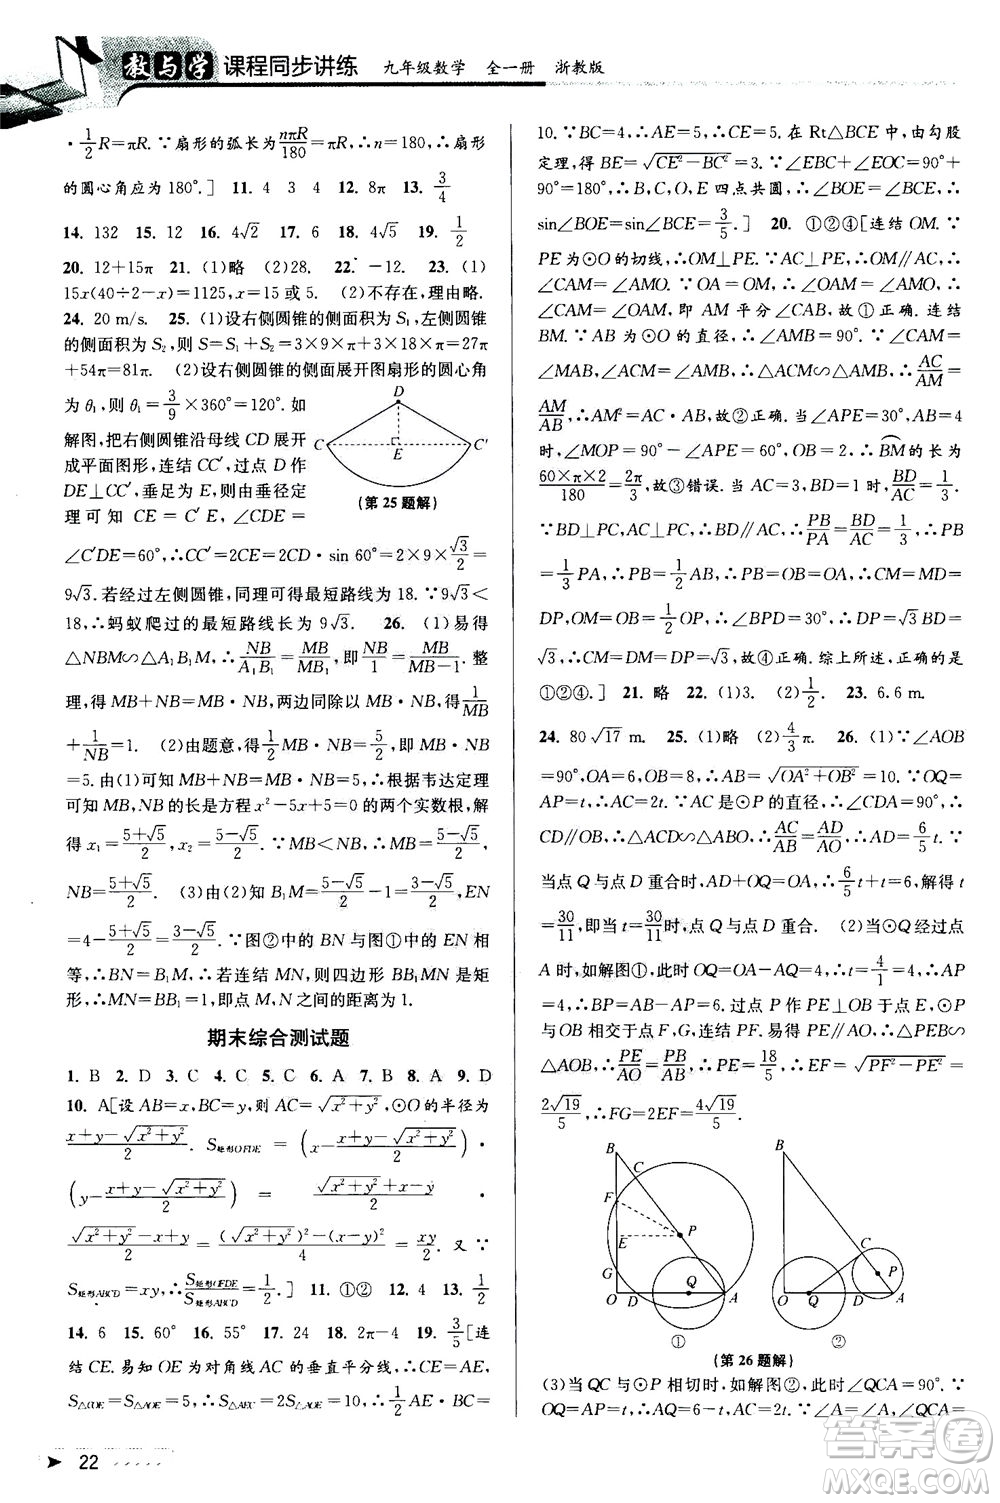 教与学 课程同步讲练 九年级数学 全一册 浙教版
·1/2R=πR.∵扇形的弧长为nπR/180=πR,∴n=180,∴扇形
的圆心角应为180°.] 11. 4 3 4 12. 8π 13. 3/4
14. 132 15. 12 16. 4√2 17. 6 18. 4√5 19. 1/2
20. 12+15π 21. (1)略 (2)28. 22. -12. 23. (1)
15x(40÷2-x)=1125,x=15或5. (2)不存在,理由略.
24. 20 m/s. 25. (1)设右侧圆锥的侧面积为S₁,左侧圆锥
的侧面积为S₂,则S=S₁+S₂=3×9×π+6×9×π=27π
+54π=81π. (2)设右侧圆锥的侧面展开图扇形的圆心角
为θ₁,则θ₁=3/9×360°=120°.如
解图,把右侧圆锥沿母线CD展开
成平面图形,连结CC′,过点D作
DE⊥CC′,垂足为E,由垂径定
理可知CE=C′E,∠CDE=
D
C E C′
(第25题解)
∠C′DE=60°,∴CC′=2CE=2CD·sin 60°=2×9×√3/2=
9√3.若经过左侧圆锥,同理可得最短路线为18.∵9√3<
18,∴蚂蚁爬过的最短路线长为9√3. 26. (1)易得
△NBM∽△A₁B₁M,∴NB/A₁B₁=MB/MB₁,即NB/1=MB/(MB-1).整
理,得MB+NB=MB·NB,两边同除以MB·NB,得1/MB
+1/NB=1. (2)由题意,得MB·NB=5/2×2=5,∴MB+NB
=5.由(1)可知MB+NB=MB·NB=5,∴根据韦达定理
可知MB,NB的长是方程x²-5x+5=0的两个实数根,解
得x₁=(5+√5)/2,x₂=(5-√5)/2.∵MB<NB,∴MB=(5-√5)/2,
NB=(5+√5)/2. (3)由(2)知B₁M=(5-√5)/2-1=(3-√5)/2,EN
=4-(5+√5)/2=(3-√5)/2.∵图②中的BN与图①中的EN相
等,∴BN=B₁M,若连结MN,则四边形BB₁MN是矩
形,∴MN=BB₁=1,即点M,N之间的距离为1.
期末综合测试题
1. B 2. D 3. C 4. C 5. C 6. A 7. B 8. A 9. D
10. A[设AB=x,BC=y,则AC=√(x²+y²),⊙O的半径为
(x+y-√(x²+y²))/2.S矩形OFDE=(x-(x+y-√(x²+y²))/2)·
(y-(x+y-√(x²+y²))/2)=(x-y+√(x²+y²))/2·
(√(x²+y²)-x+y)/2=((√(x²+y²))²-(x-y)²)/4=xy/2.又∵
S矩形ABCD=xy,∴S矩形OFDE/S矩形ABCD=1/2.] 11. ①② 12. 4 13. 1/2
14. 6 15. 60° 16. 55° 17. 24 18. 2π-4 19. 3/5[连
结CE.易知OE为对角线AC的垂直平分线,∴CE=AE,
S△COE=S△AOE=5,∴S△AEC=2S△AOE=10,∴1/2AE·BC=
10.∵BC=4,∴AE=5,∴CE=5.在Rt△BCE中,由勾股
定理,得BE=√(CE²-BC²)=3.∵∠EBC+∠EOC=90°+
90°=180°,∴B,C,O,E四点共圆,∴∠BOE=∠BCE,∴
sin∠BOE=sin∠BCE=3/5.] 20. ①②④[连结OM.∵
PE为⊙O的切线,∴OM⊥PE.∵AC⊥PE,∴OM∥AC,∴
∠CAM=∠AMO.∵OA=OM,∴∠OAM=∠AMO,
∴∠CAM=∠OAM,即AM平分∠CAB,故①正确.连结
BM.∵AB为⊙O的直径,∴∠AMB=90°.∵∠CAM=
∠MAB,∠ACM=∠AMB,∴△ACM∽△AMB,∴AC/AM=
AM/AB,∴AM²=AC·AB,故②正确.当∠APE=30°,AB=4
时,∠MOP=90°-∠APE=60°,OB=2,∴BM的长为
60×π×2/180=2π/3,故③错误.当AC=3,BD=1时,BD/AC=1/3.
∵BD⊥PC,AC⊥PC,∴BD∥AC,∴PB/PA=BD/AC=1/3,∴PB
=1/3PA,∴PB=1/2AB=OB=OA,∴CM=MD=
DP,OM=OB=1/2OP,∴∠BPD=30°,∴DP=BD·√3=
√3,∴CM=DM=DP=√3,故④正确.综上所述,正确的是
①②④.] 21. 略 22. (1)3. (2)1/2. 23. 6.6 m.
24. 80√17 m. 25. (1)略 (2)4/3π. 26. (1)∵∠AOB
=90°,OA=6,OB=8,∴AB=√(OA²+OB²)=10.∵OQ=
AP=t,∴AC=2t.∵AC是⊙P的直径,∴∠CDA=90°,∴
CD∥OB,∴△ACD∽△ABO,∴AC/AB=AD/AO,∴AD=6/5t.∵
当点Q与点D重合时,AD+OQ=OA,∴6/5t+t=6,解得t
=30/11,即当t=30/11时,点Q与点D重合. (2)当⊙Q经过点
A时,如解图①,此时OQ=OA-QA=4,∴t=4/1=4,∴AP
=4,∴BP=AB-AP=6.过点P作PE⊥OB于点E,⊙P
与OB相交于点F,G,连结PF.易得PE∥AO,∴△PEB∽
△AOB,∴PE/AO=PB/AB,∴PE=18/5,∴EF=√(PF²-PE²)=
2√19/5,∴FG=2EF=4√19/5.
B C F P E G O D Q A
①
B C P O Q D A
②
(第26题解)
(3)当QC与⊙P相切时,如解图②,此时∠QCA=90°.∵
OQ=AP=t,∴AQ=6-t,AC=2t.∵∠A=∠A,∠QCA=
22
答案圈
MXQE.COM